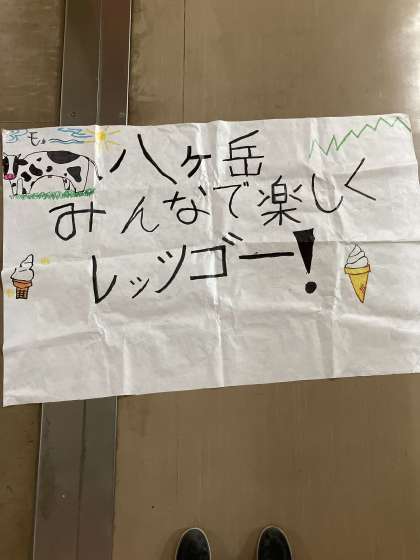 モー
八ヶ岳
みんなで楽しく
レッツゴー!